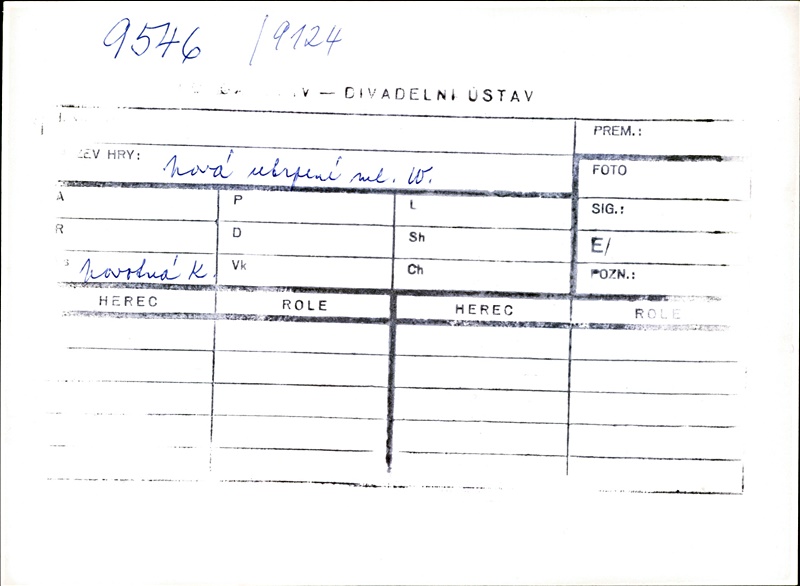 9546 /9124
V — DIVADELNÍ ÚSTAV
PREM.:
ZEV HRY: Nová utrpení ml. W.
FOTO
A P L SIG.:
R D Sh E/
Novotná K. Vk Ch POZN.:
HEREC ROLE HEREC ROLE